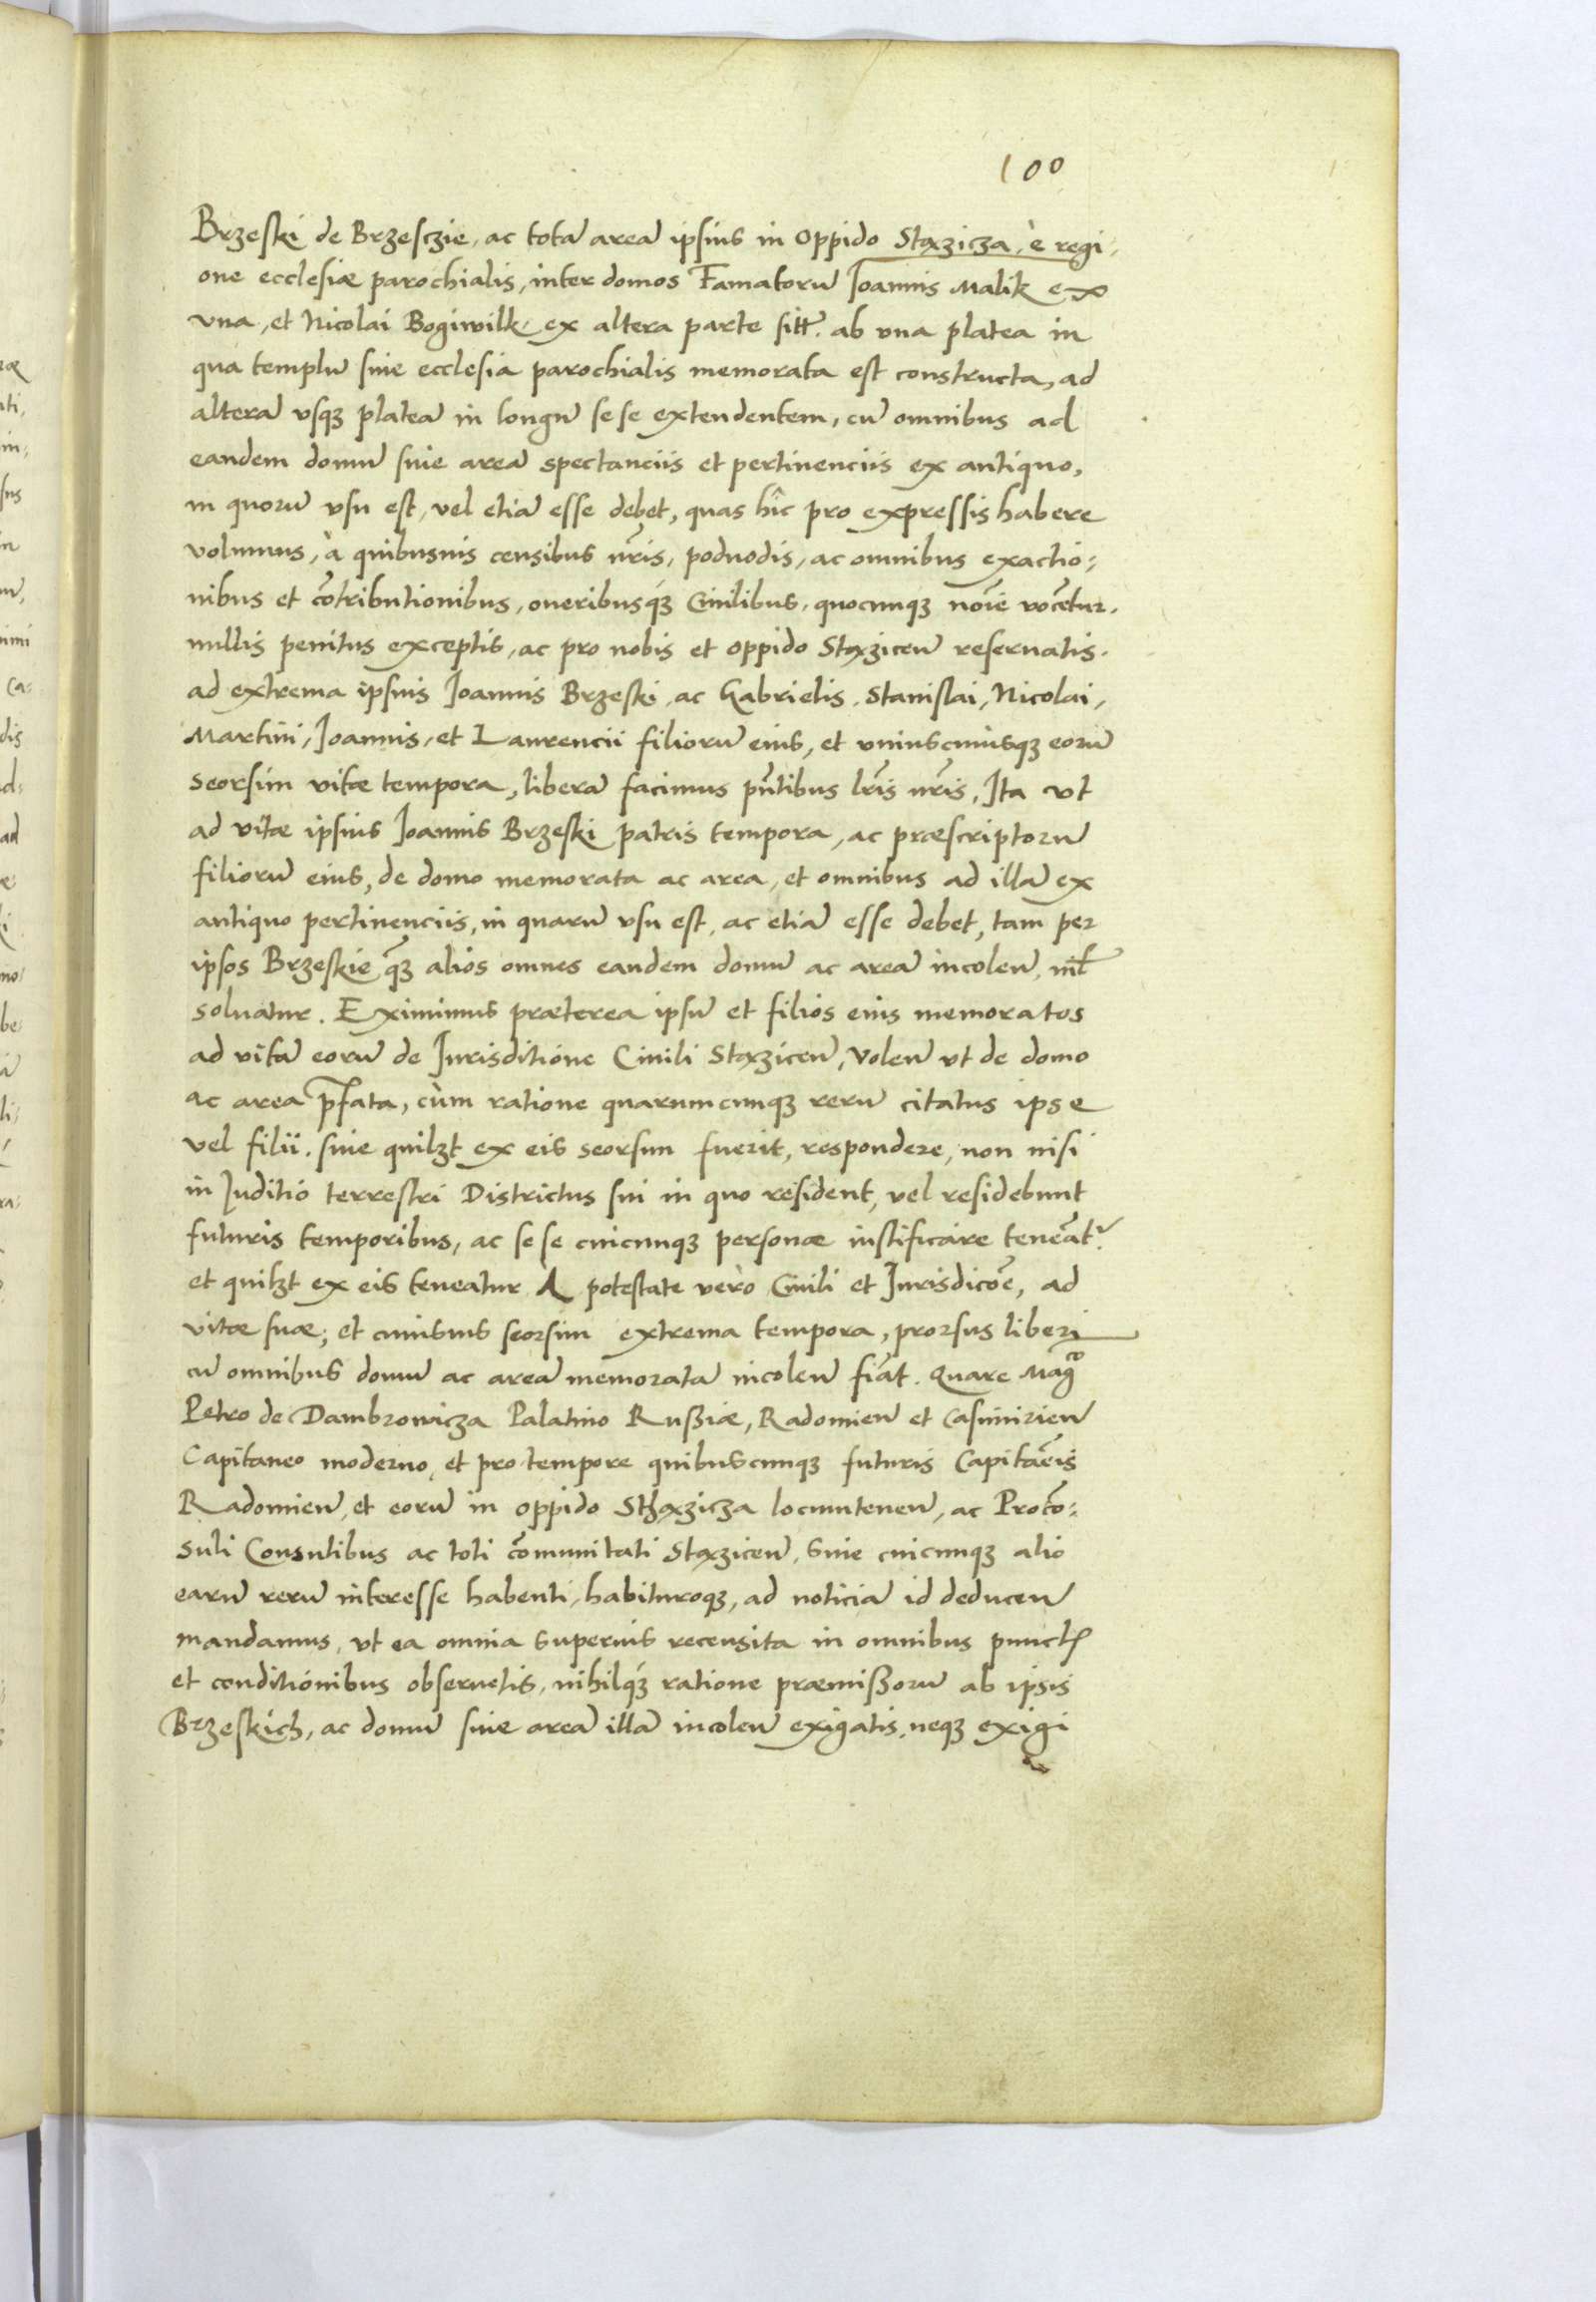 100
Brzeski de Brzesczie, ac totā areā ipsius in Oppido Stązicza, è regi,
one ecclesiæ parochialis, inter domos Famatorū Joannis Malik ex
vna, et Nicolai Bogiwilk, ex altera parte sitt̃. ab vna platea in
qua templū siue ecclesia parochialis memorata est constructa, ad
alterā vsqꝫ plateā in longū sese extendentem, cū omnibus ad
eandem domū siue areā spectanciis et pertinenciis ex antiquo,
in quorū vsu est, vel etiā esse debet, quas hîc pro expressis habere
volumus, à quibusuis censibus nr̃is, poduodis, ac omnibus exactio:
nibus et cõtributionibus, oneribusqꝫ́ Ciuilibus, quocunqꝫ noĩe vocẽtur.
nullis penitus exceptis, ac pro nobis et oppido Stązicen̄ reseruatis.
ad extrema ipsius Joannis Brzeski, ac Gabrielis, Stanislai, Nicolai,
Martini, Joannis, et Laurencii filiorū eius, et vniuscuiusqꝫ eorū
seorsim vitæ tempora, liberā facimus pñtibus lr̃is nr̃is, Ita vt
ad vitæ ipsius Joannis Brzeski patris tempora, ac præscriptorū
filiorū eius, de domo memorata ac area, et omnibus ad illā ex
antiquo pertinenciis, in quarū vsu est, ac etiā esse debet, tam per
ipsos Brzeskie, q̃ꝫ alios omnes eandem domū ac areā incolen̄, nil̃
soluatur. Eximimus præterea ipsū et filios eius memoratos
ad vitā eorū de Jurisditione Ciuili Stązicen̄, Volen̄ vt de domo
ac area p̃fata, cùm ratione quarumcunqꝫ rerū citatus ipse
vel filii. siue quilꝫt ex eis seorsim fuerit, respondere, non nisi
in Juditio terrestri Districtus sui in quo resident, vel residebunt
futuris temporibus, ac sese cuicunqꝫ personæ iustificare teneãt͛.
et quilꝫt ex eis teneatur A potestate vero Ciuili et Jurisdicõe, ad
vitæ suæ, et cuiusuis seorsim extrema tempora, prorsus liberi
cū omnibus domū ac areā memoratā incolen̄ fiãt. Quare Mag͞co
Petro de Dambrowicza Palatino Rußiæ, Radomien̄ et Casimirien̄
Capitaneo moderno, et pro tempore quibuscunqꝫ futuris Capitãeis
Radomien̄, et eorū in oppido Sthązicza locumtenen̄, ac Procõ:
suli Consulibus ac toti cõmunitati Stązicen̄, siue cuicunqꝫ alio
earū rerū interesse habenti, habituroqꝫ, ad noticiā id deducen̄
mandamus, vt ea omnia superius recensita in omnibus punctꝭ
et conditionibus obseruetis, nihilqꝫ́ ratione præmißorū ab ipsis
Brzeskich, ac domū siue areā illā incolen̄ exigatis, neqꝫ exigi